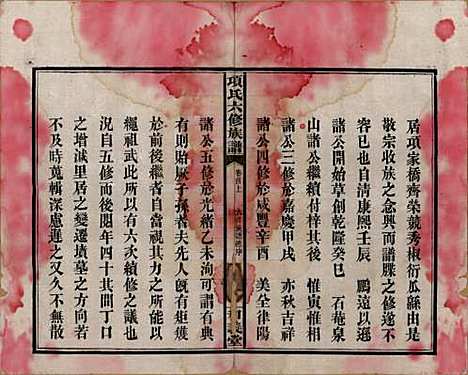 居項家橋齊榮競秀椒衍瓜緜由是
敬宗收族之念興而譜牒之修遂不
容已也自清康熙壬辰 鵬遠以遜
諸公開始草創乾隆癸巳 石菴泉
山諸公繼續付梓其後 惟寅惟相
諸公三修於嘉慶甲戌 亦秋吉祥
諸公四修於咸豐辛酉 美全律陽
項氏六修族譜
卷首上
諸公五修於光緒乙未洵可謂有典
有則貽厥子孫者夫先人既有矩矱
於前後繼者自
繩祖武此所以有六修之議也
自五修而後閱年四十其間丁口
之增減里居之變遷墳墓之方向若
不及時蒐輯深慮遲之又久不無散